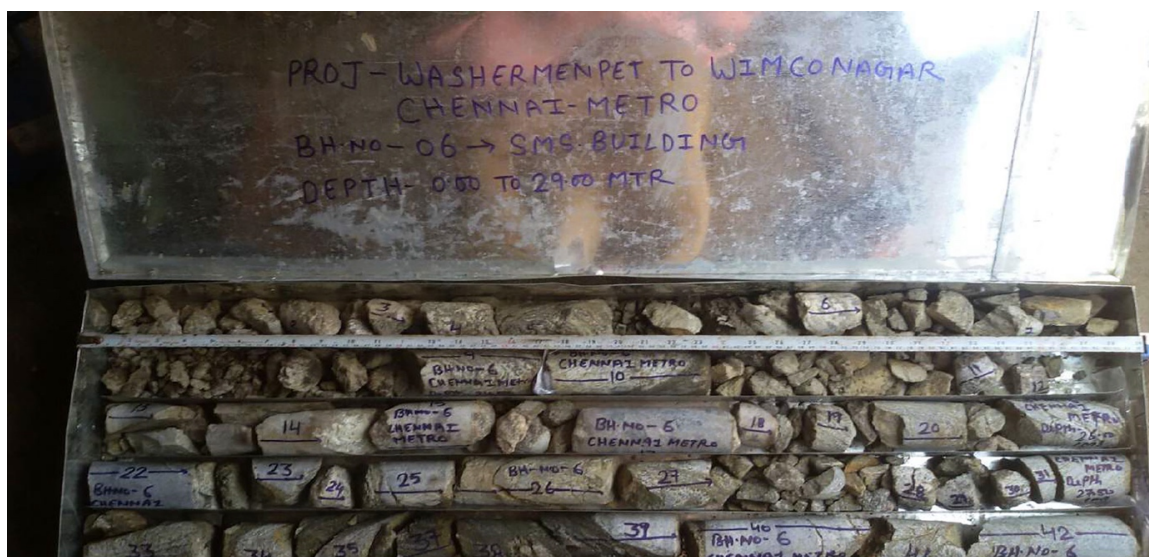 PROJ-WASHERMENPET TO WIMCO NAGAR
CHENNAI-METRO
BH·NO-06→SMS.BUILDING
DEPTH-0.00 TO 29.00 MTR
3
4
5
6
7
9
BH·NO-6
CHENNAI MET
CHENNAI METRO
10
11
12
13
14
BH·NO-6
CHENNAI
METRO
BH·NO-6
CHENNAI METRO
18
19
20
CHENNAI
METRO
DEPTH,
22
BH·NO-6
CHENNAI
23
24
25
BH-NO-6
26
27
28
29
30
31
CHENNAI
METRO
DEPTH,
27.50
33
34
35
37
38
39
40
BH·NO-6
CHENNAI METRO
41
42
BH·NO-6